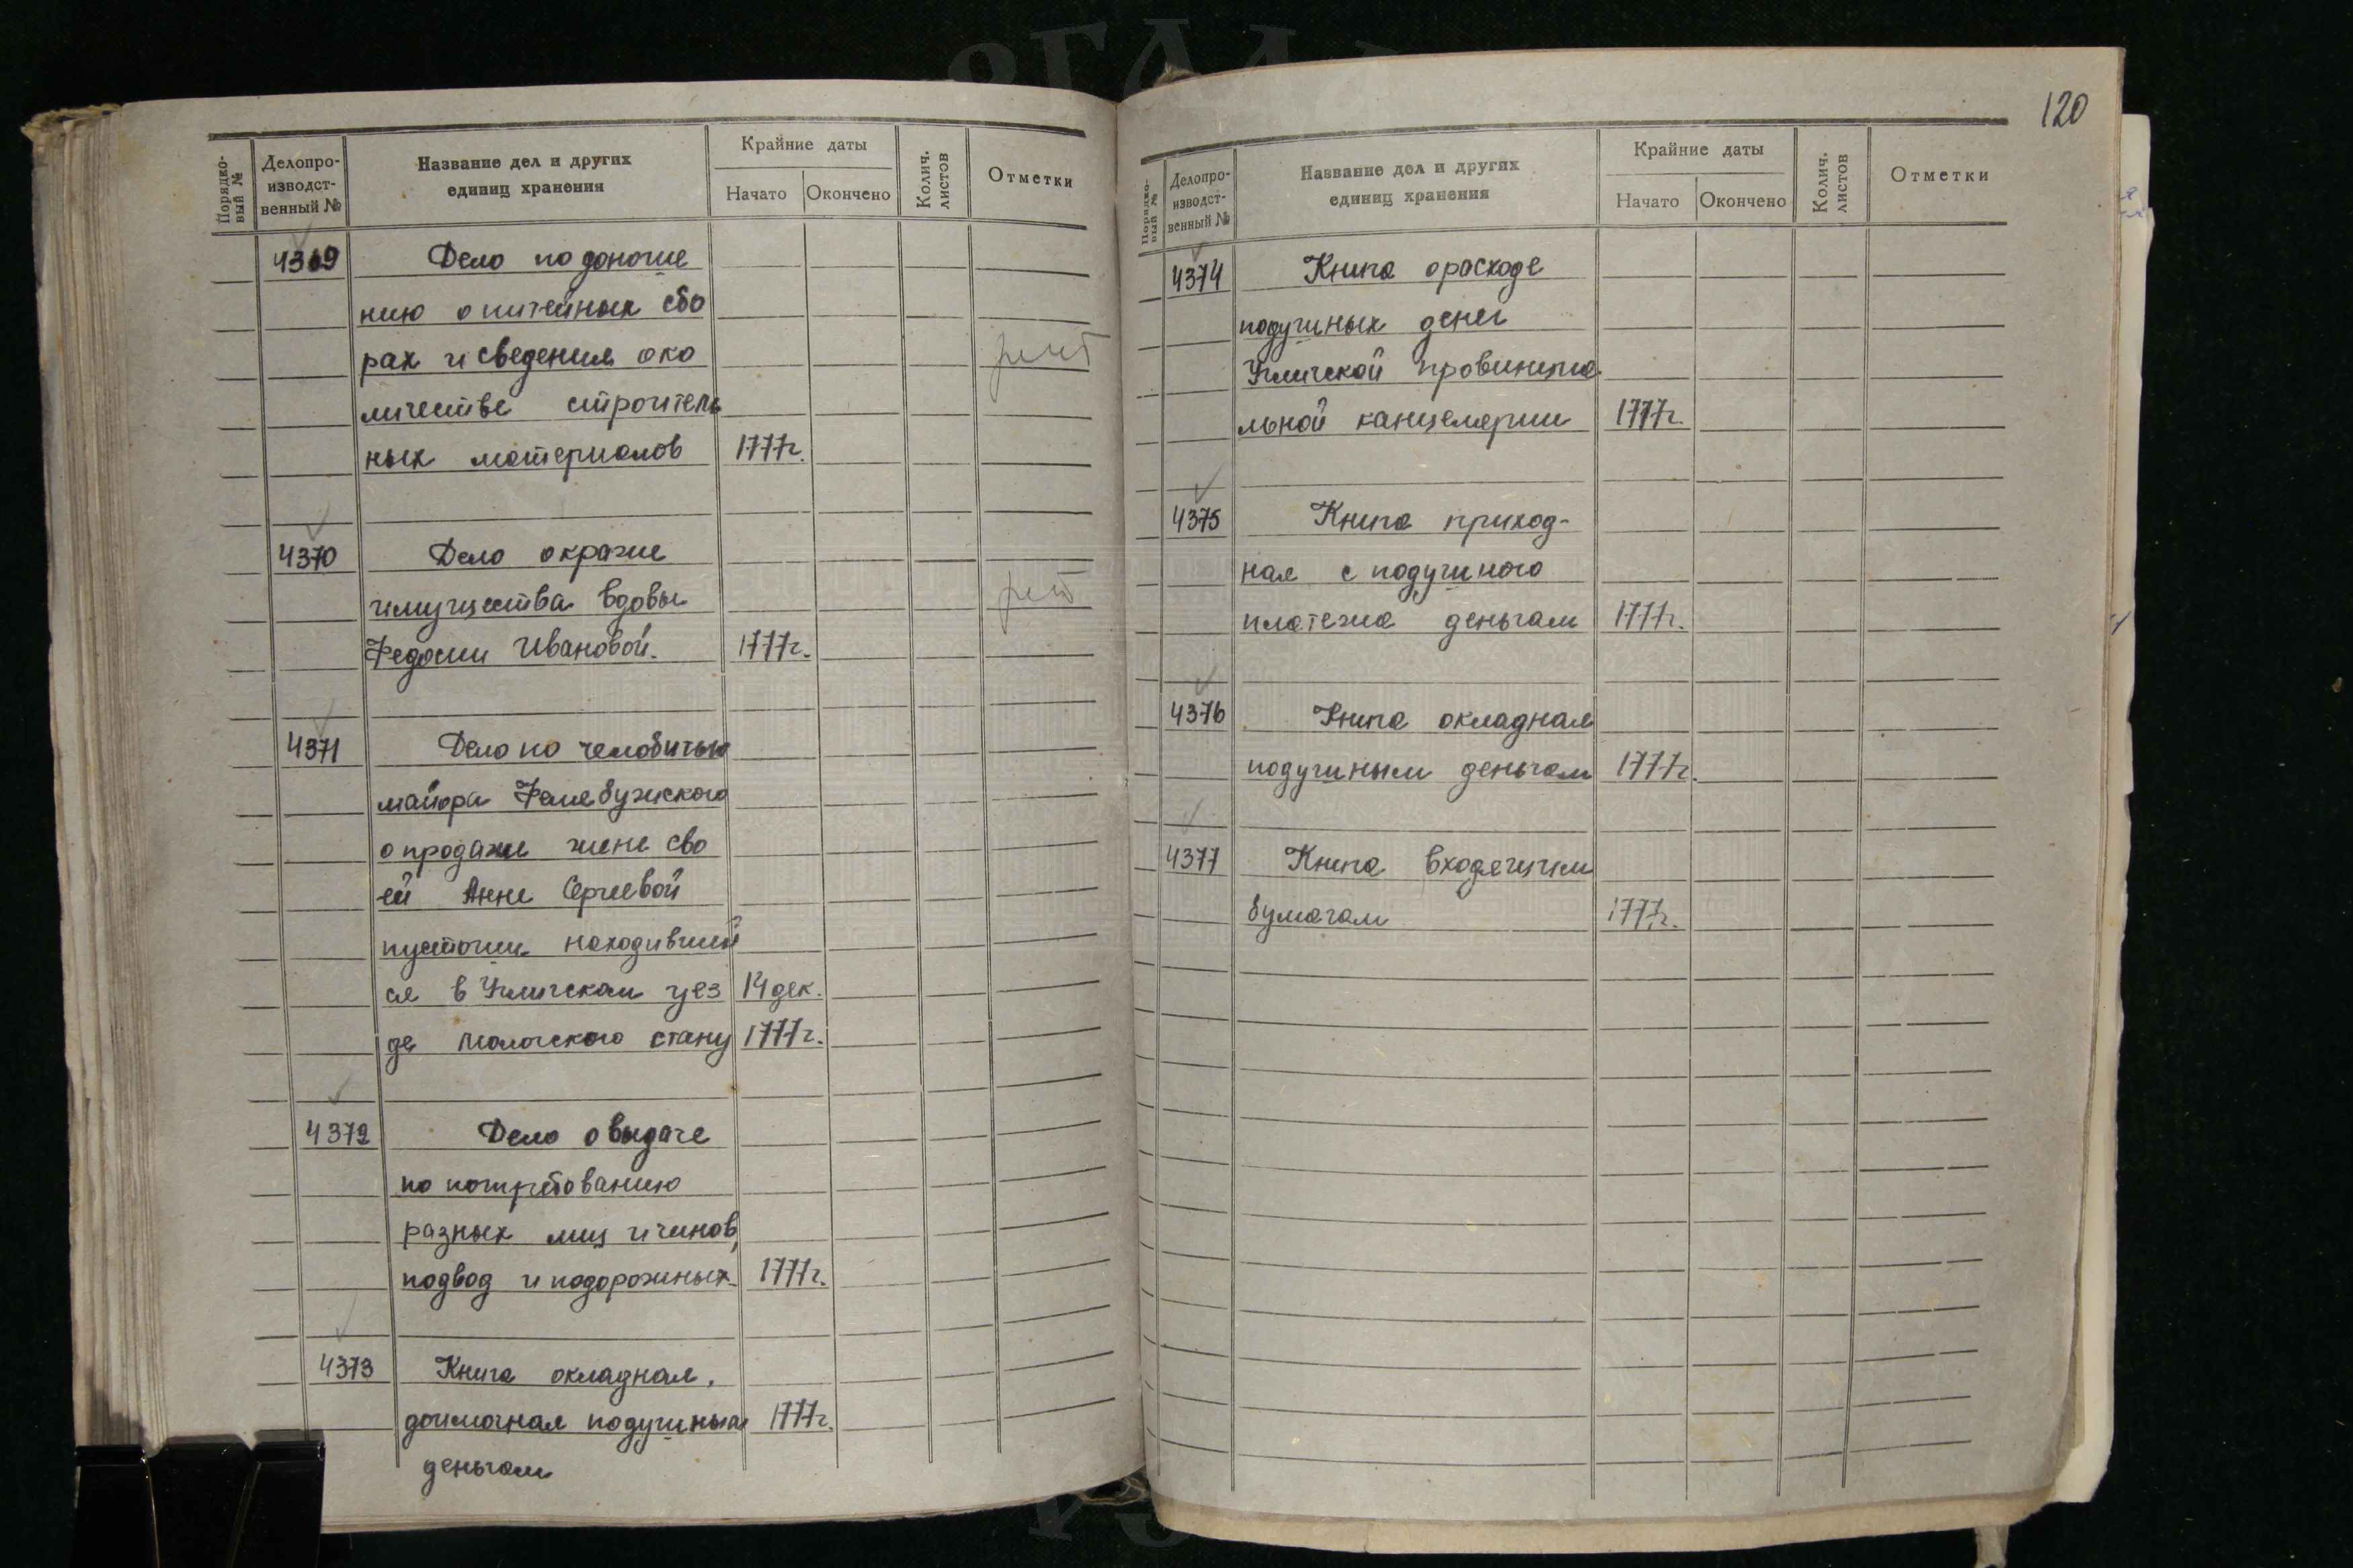 Порядко-
вый №
Делопро-
изводст-
венный №
Название дел и других
единиц хранения
Крайние даты
Начато
Окончено
Колич.
листов
Отметки
4369
Дело по доноше
нию о питейных сбо
рах и сведения о ко
личестве строитель
ных материалов 1777г.
4370
Дело о краже
имущества вдовы
Федосии Ивановой. 1777г.
4371
Дело по челобитью
майора
о продаже жене сво
ей Анне Сергеевой
пустоши находившей
ся в Угличском уез 14 дек.
де Моложского стану 1777г.
4372
Дело о выдаче
по потребованию
разных лиц и чинов,
подвод и подорожных 1777г.
4373
Книга окладная,
доимочная подушным 1777г.
деньгам
120
Порядко-
вый №
Делопро-
изводст-
венный №
Название дел и других
единиц хранения
Крайние даты
Начато
Окончено
Колич.
листов
Отметки
4374
Книга о расходе
подушных денег
Угличской провинциа
льной канцелярии 1777г.
4375
Книга приход-
ная с подушного
платежа деньгам 1777г.
4376
Книга окладная
подушным деньгам 1777г.
4377
Книга входящим
бумагам 1777г.